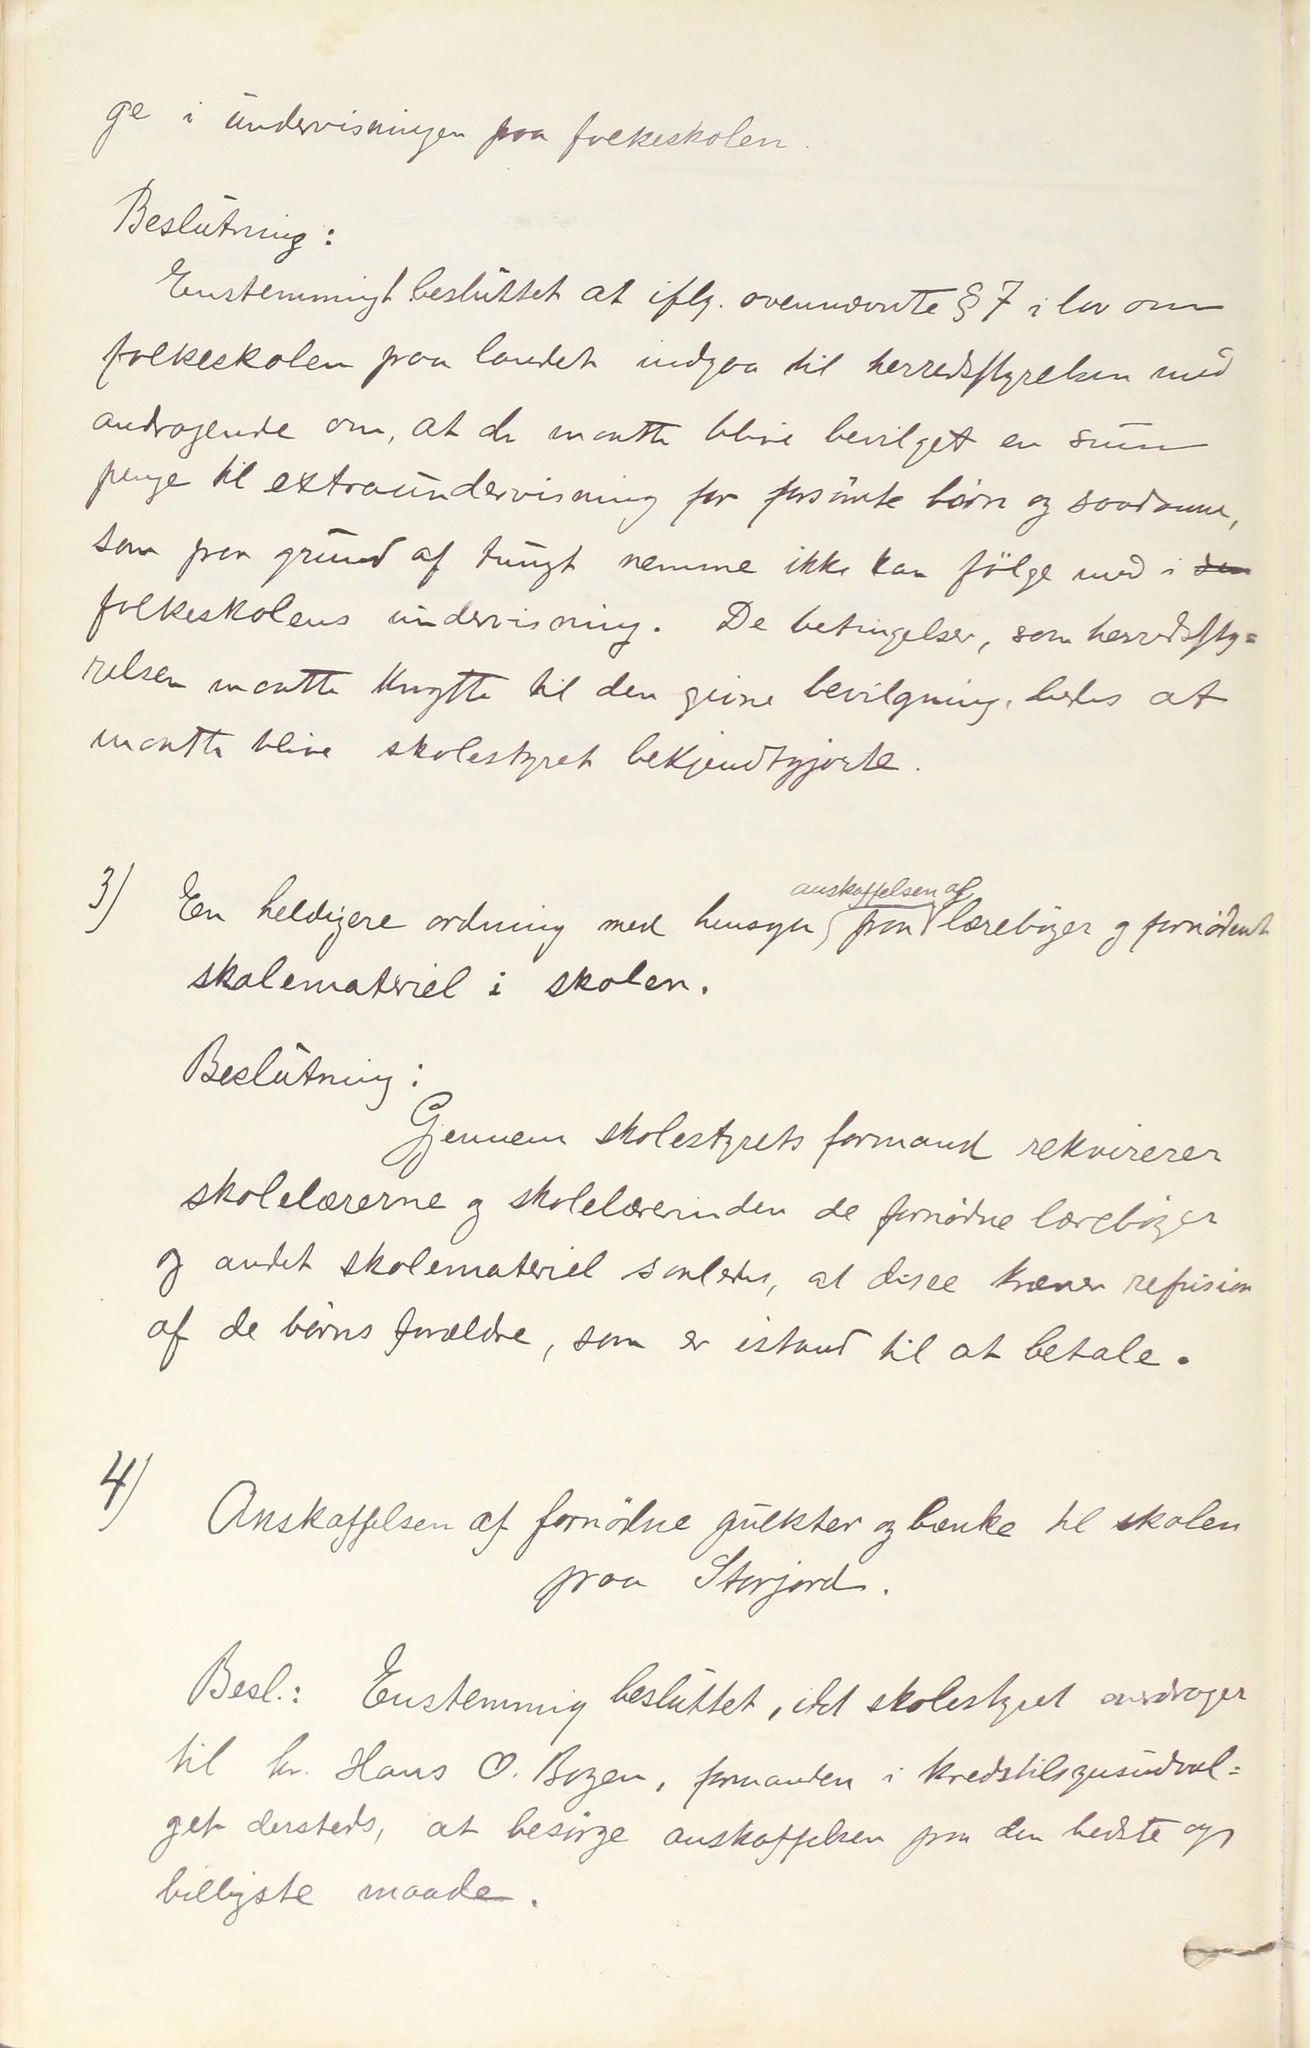 ge i undervisningen paa folkeskolen.
Beslutning:
Enstemmigt besluttet at iflg. ovennævnte § 7 i lov om
folkeskolen paa landet indgaa til herredsstyrelsen med
andragende om, at der maatte blive bevilget en sum
penge til extraundervisning for forsömte börn og saadanne,
som paa grund af tungt nemme ikke kan fölge med i den
folkeskolens undervisning. De betingelser, som herredssty=
relsen maatte knytte til den givne bevilgning, bedes at
maatte blive skolestyret bekjendtgjorte.
3) En heldigere ordning med hensyn paa anskaffelsen af lærebøger og fornødent
skolemateriel i skolen.
Beslutning:
Gjennem skolestyrets formand rekvirerer
skolelærerne og skolelærerinden de fornødne lærebøger
og andet skolemateriel saaledes, at disse kræver refusion
af de børns forældre, som er istand til at betale.
4) Anskaffelsen af fornödne pulter og bænke til skolen
paa Storjord.
Besl.: Enstemmig besluttet, at skolestyret overdrager
til hr. Hans O. Bogen, formanden i kredstilsynsudval=
get dersteds, at besørge anskaffelsen paa den bedste og
billigste maade.